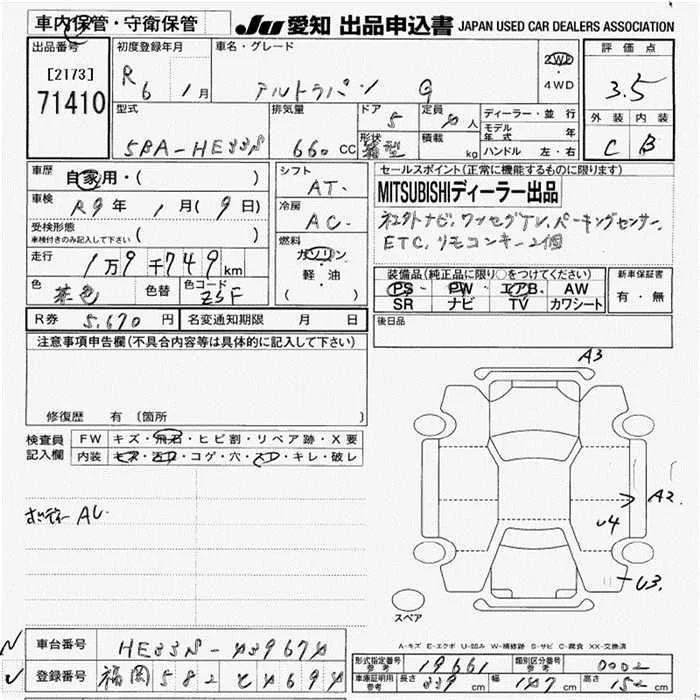 車内保管・守衛保管 JU 愛知 出品申込書 JAPAN USED CAR DEALERS ASSOCIATION
出品番号 [2173] 71410
初度登録年月 R6 1月
車名・グレード アルトラパン G
2WD ・ 4WD
評価点 3.5
外装 C 内装 B
型式 5BA-HE33S
排気量 660 cc
ドア 5
形状 箱型
定員 人
積載 kg
ディーラー・並行
モデル年式 年
ハンドル 左・右
車歴 自家用・( )
車検 R9年 1月(9日)
受検形態 車検付きのみ記入して下さい ( )
走行 1万9千749km
色 茶色 色替 色コード ZSF
シフト AT.
冷房 AC.
燃料 ガソリン 軽・油 ( )
セールスポイント(正常に機能するものに限ります)
MITSUBISHIディーラー出品
ネスクトナビ.ワンセグTV.パーキングセンサー.
ETC.リモコンキー2個
装備品(純正品に限り○をつけてください)
PS PW エアB AW
SR ナビ TV カワシート
新車保証書 有・無
R券 5,670円 名変通知期限 月 日
後日品
注意事項申告欄(不具合内容等は具体的に記入して下さい)
修復歴 有 〔箇所 〕
検査員記入欄
FW キズ・飛石・ヒビ割・リペア跡・X要
内装 キズ・汚れ・コゲ・穴・スレ・キレ・破レ
A3
A2
U4
U3
スペア
A-キズ E-エクボ U-凹み W-補修跡 S-サビ C-腐食 XX-交換済
車台番号 HE33S-
登録番号 福岡582
形式指定番号 参考 19661 類別区分番号 参考 0002
車庫証明用参考 長さ 339cm 幅 147cm 高さ 152cm